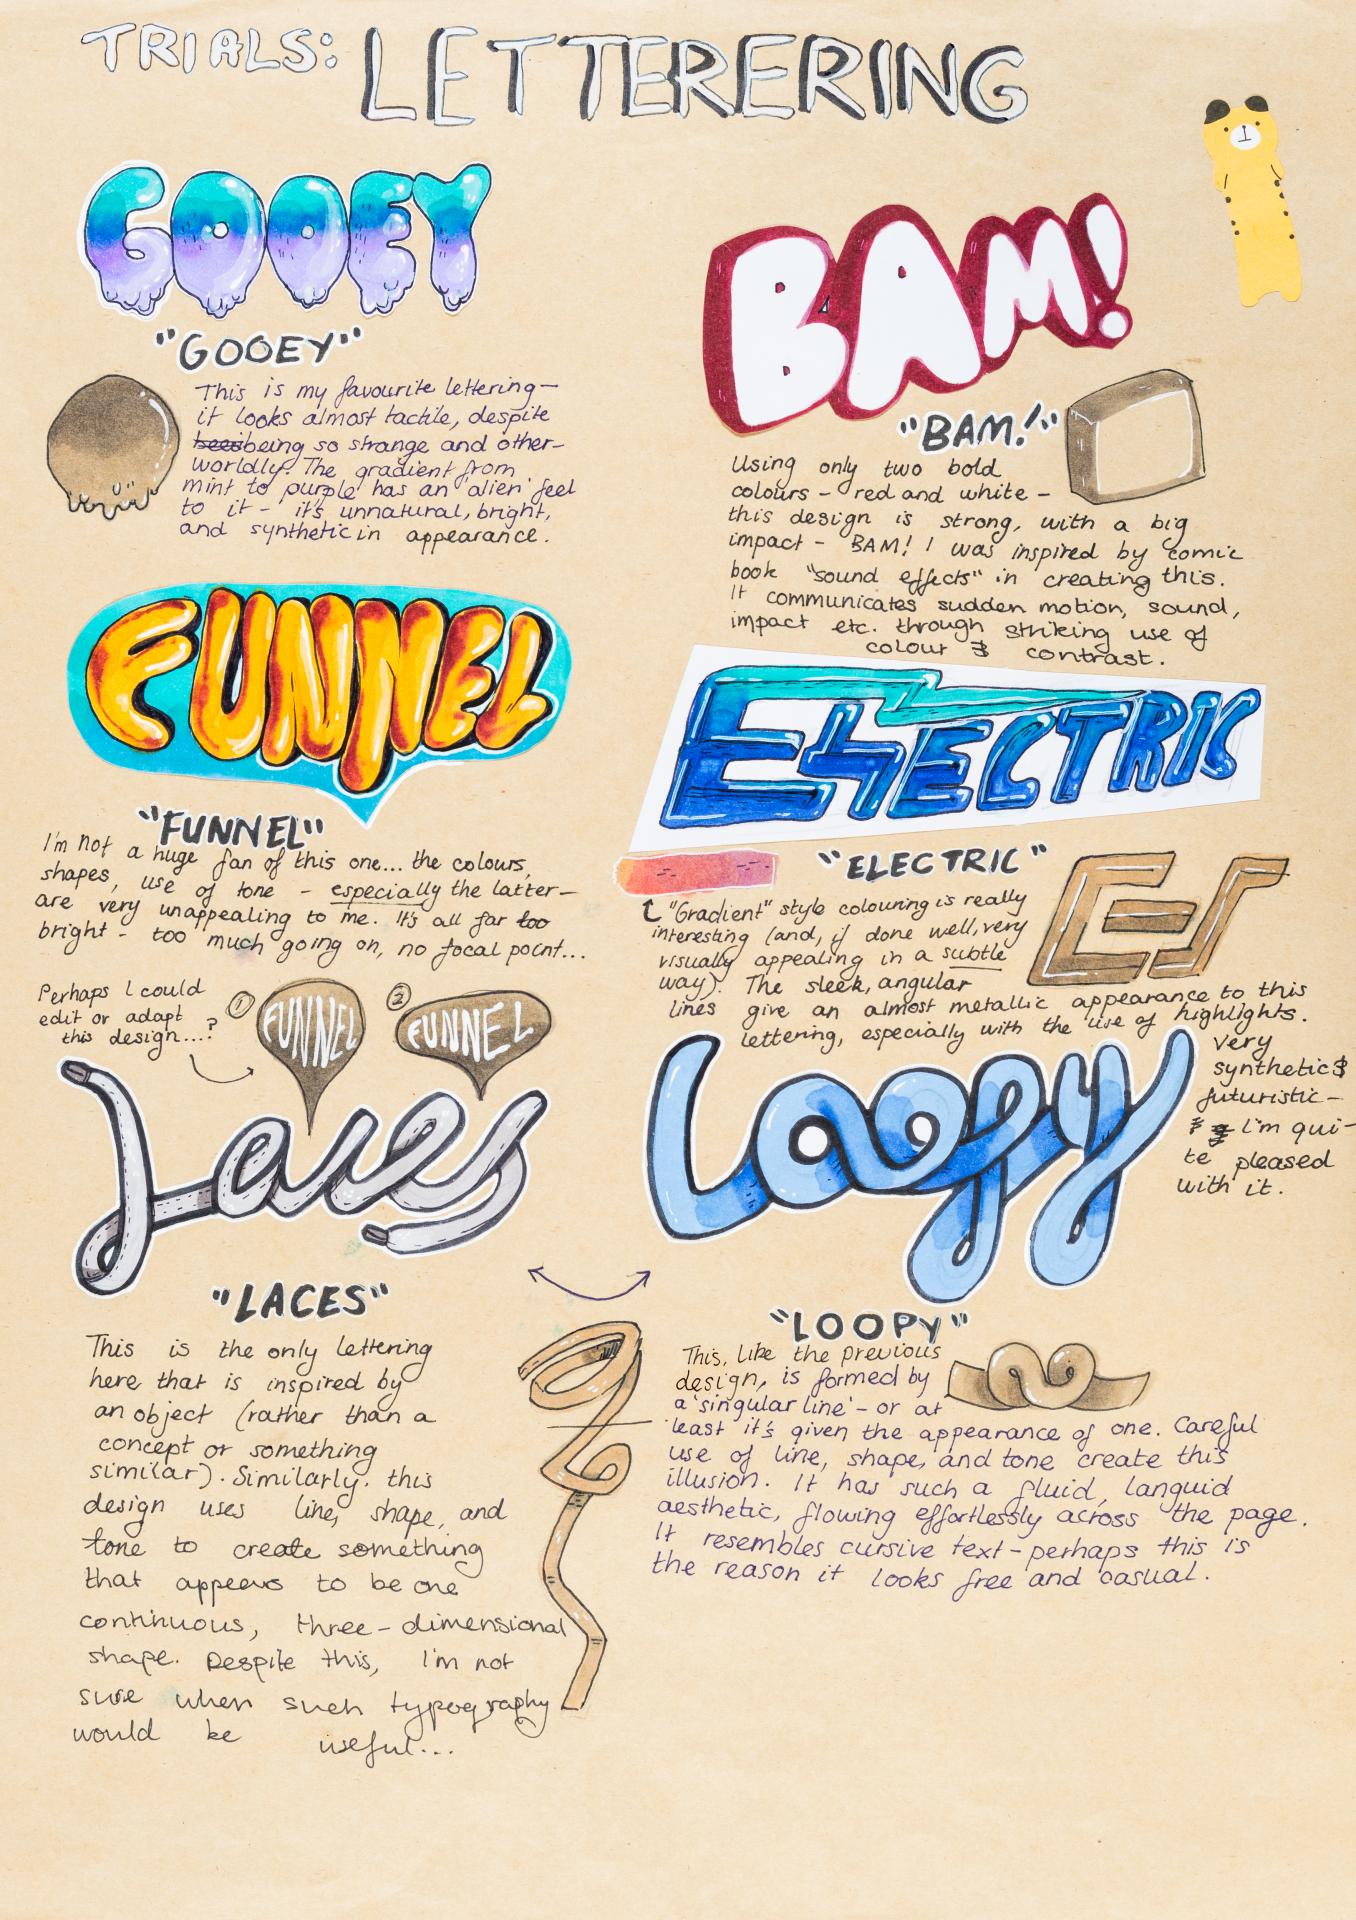 TRIALS: LETTERERING
GOOEY
"GOOEY"
This is my favourite lettering –
it looks almost tactile, despite
being so strange and other-
worldly. The gradient from
mint to purple has an 'alien' feel
to it – it's unnatural, bright,
and synthetic in appearance.
BAM!
"BAM!"
Using only two bold
colours – red and white –
this design is strong, with a big
impact – BAM! I was inspired by comic
book "sound effects" in creating this.
It communicates sudden motion, sound,
impact etc. through striking use of
colour & contrast.
FUNNEL
"FUNNEL"
I'm not a huge fan of this one... the colours,
shapes, use of tone – especially the latter –
are very unappealing to me. It's all far too
bright – too much going on, no focal point...
Perhaps I could
edit or adapt
this design...?
1 FUNNEL
2 FUNNEL
ELECTRIC
"ELECTRIC"
"Gradient" style colouring is really
interesting (and, if done well, very
visually appealing in a subtle
way). The sleek, angular
lines give an almost metallic appearance to this
lettering, especially with the use of highlights.
very
synthetic &
futuristic –
I'm qui-
te pleased
with it.
Laces
"LACES"
This is the only lettering
here that is inspired by
an object (rather than a
concept or something
similar). Similarly, this
design uses line, shape, and
tone to create something
that appears to be one
continuous, three-dimensional
shape. Despite this, I'm not
sure when such typography
would be useful...
Loopy
"LOOPY"
This, like the previous
design, is formed by
a 'singular line' – or at
least it's given the appearance of one. Careful
use of line, shape, and tone create this
illusion. It has such a fluid, languid
aesthetic, flowing effortlessly across the page.
It resembles cursive text – perhaps this is
the reason it looks free and casual.